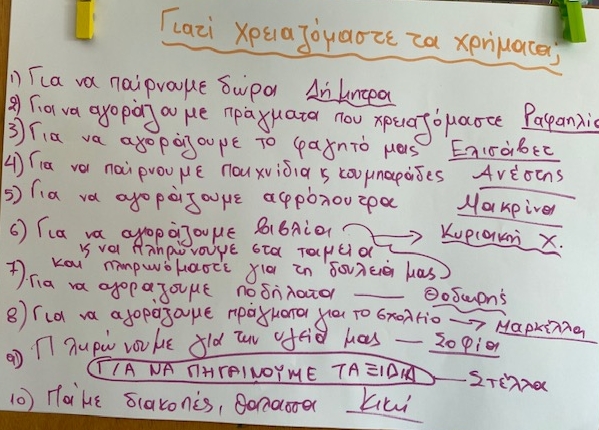 Γιατί χρειαζόμαστε τα χρήματα;
1) Για να παίρνουμε δώρα Δήμητρα
2) Για να αγοράζουμε πράγματα που χρειαζόμαστε Ραφαηλία
3) Για να αγοράζουμε το φαγητό μας Ελισάβετ
4) Για να παίρνουμε παιχνίδια ϗ κουμπαράδες Ανέστης
5) Για να αγοράζουμε αφρόλουτρα Μακρίνα
6) Για να αγοράζουμε βιβλία Κυριακή Χ.
ϗ να πληρώνουμε στα ταμεία
και πληρωνόμαστε για τη δουλειά μας
7) Για να αγοράζουμε ποδήλατα — Θοδωρής
8) Για να αγοράζουμε πράγματα για το σχολείο → Μαρκέλλα
9) Πληρώνουμε για την υγεία μας — Σοφία
ΓΙΑ ΝΑ ΠΗΓΑΙΝΟΥΜΕ ΤΑΞΙΔΙΑ — Στέλλα
10) Πάμε διακοπές, θάλασσα Κική